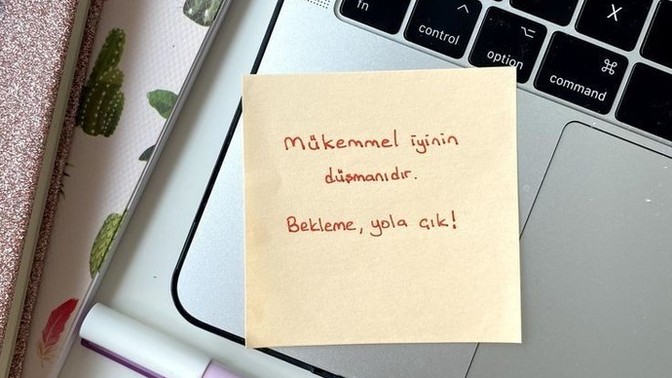 fn
control
option
command
X
Mükemmel iyinin
düşmanıdır.
Bekleme, yola çık!